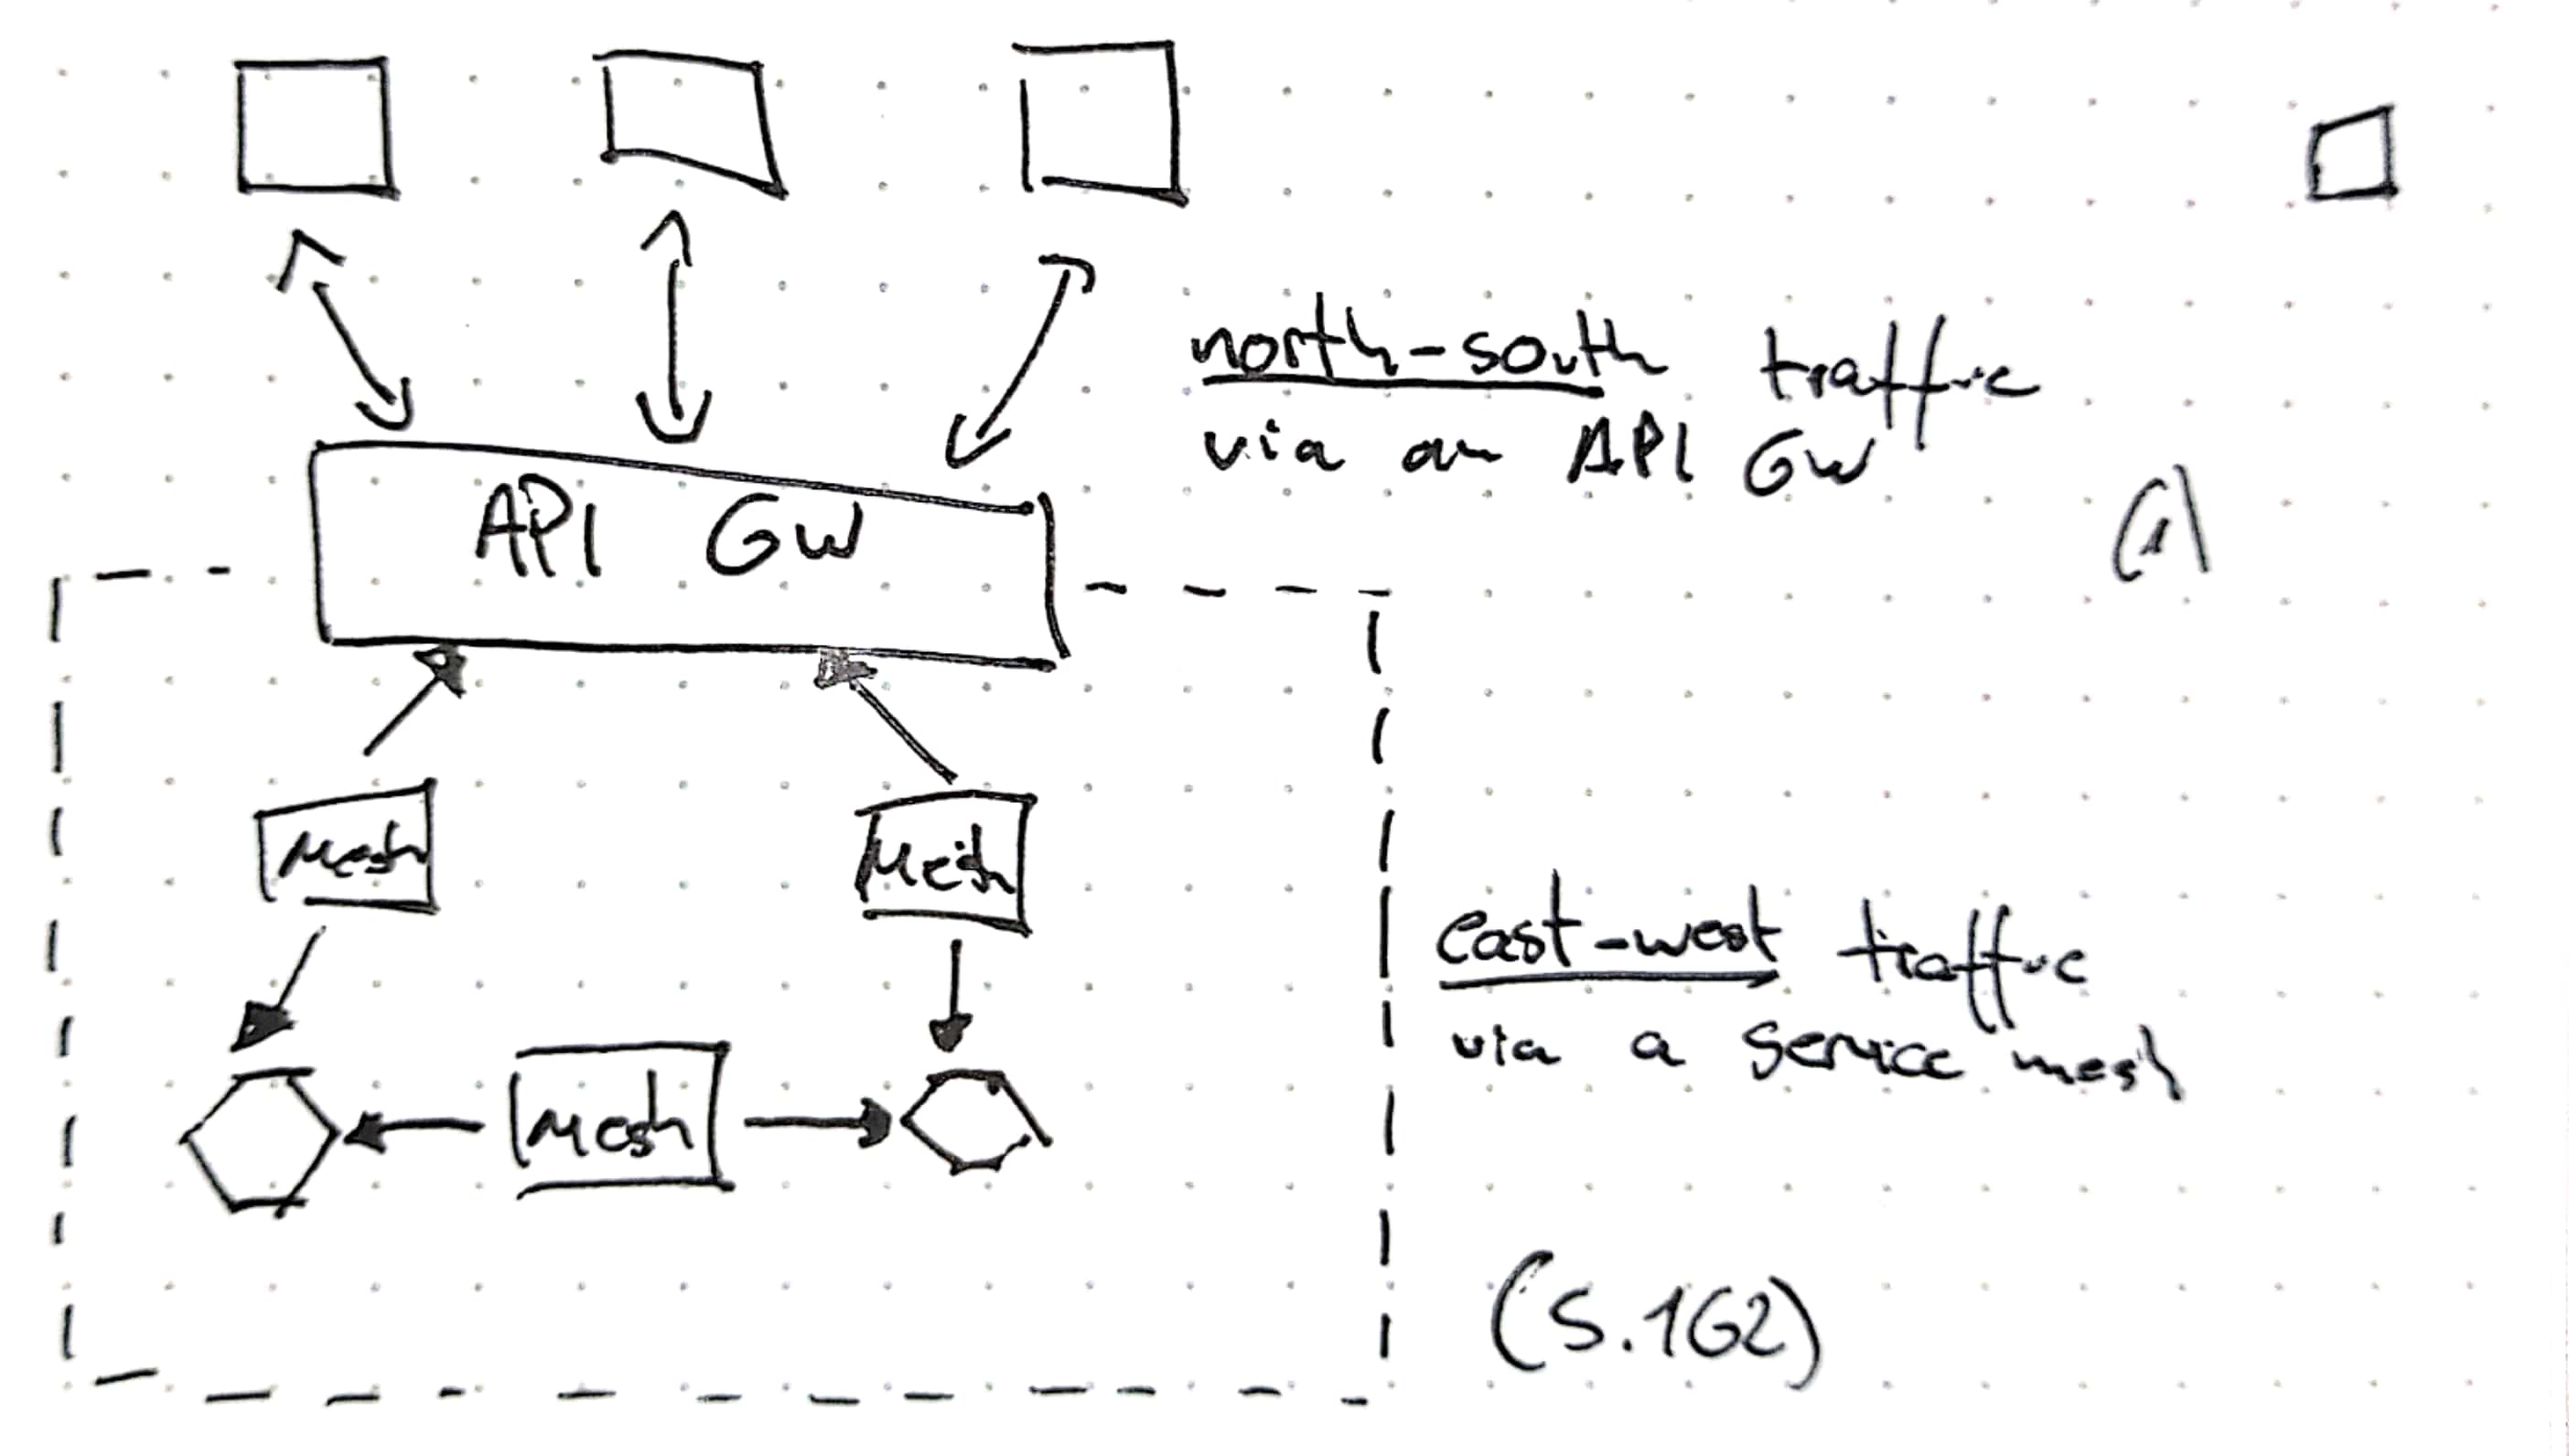 north-south traffic
via an API GW
(1)
API GW
Mesh
Mesh
east-west traffic
via a service mesh
Mesh
(S.162)